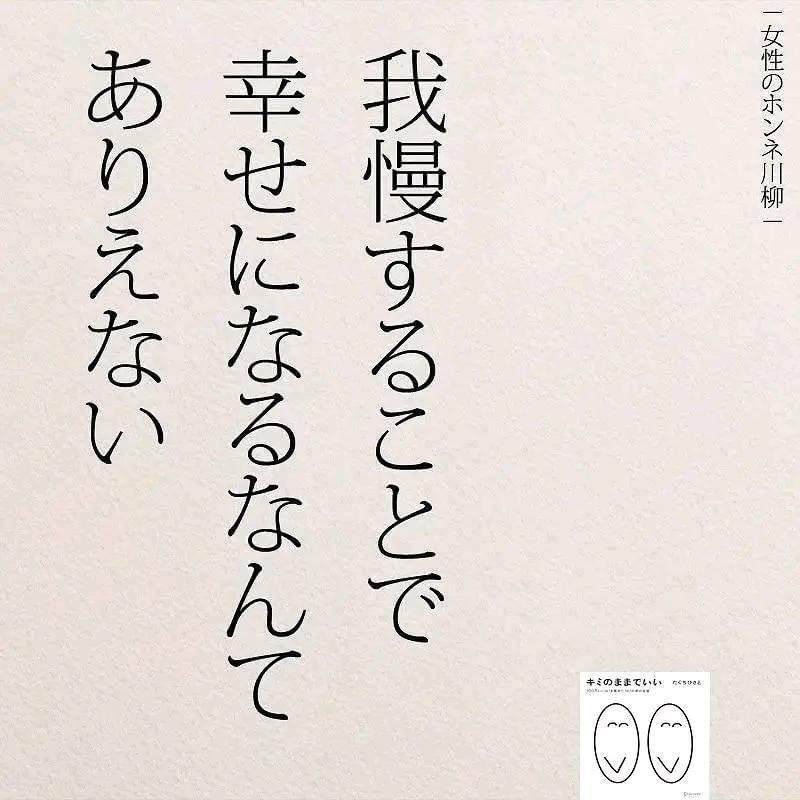 ―女性のホンネ川柳―
我慢することで
幸せになるなんて
ありえない
キミのままでいい
たぐちひさと